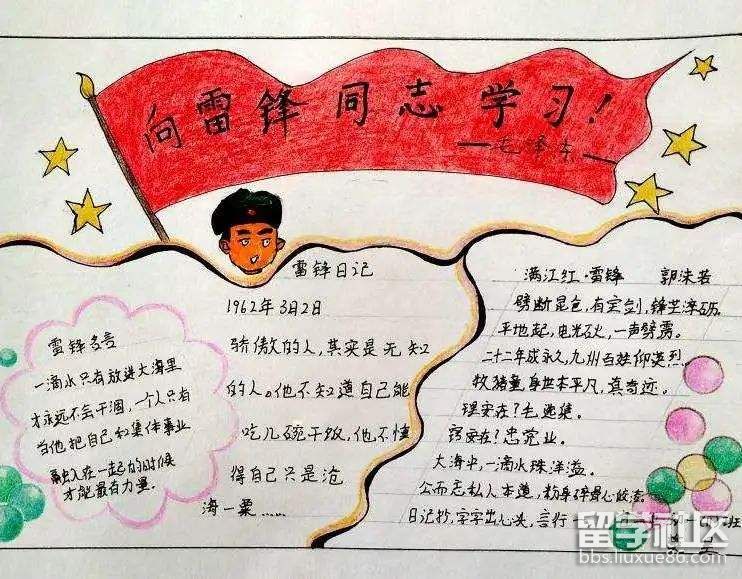 向雷锋同志学习!
——毛泽东——
雷锋名言
一滴水只有放进大海里
才永远不会干涸,一个人只有
当他把自己和集体事业
融入在一起的时候
才能最有力量.
雷锋日记
1962年3月2日
骄傲的人,其实是无知
的人。他不知道自己能
吃几碗干饭,他不懂
得自己只是沧
海一粟……
满江红·雷锋 郭沫若
劈断昆仑,有宝剑,锋芒淬砺.
平地起,电光石火,一声霹雳.
二十二年成永久,九州百姓仰英烈.
牧猪童,身世本平凡,真奇迹.
现实在?毛选集.
窍实在?忠党业.
大海中,一滴水珠洋溢.
公而忘私人本道,粉身碎骨心皎洁.
日记抄,字字出心头,言行一
班
留学社区
bbs.liuxue86.com